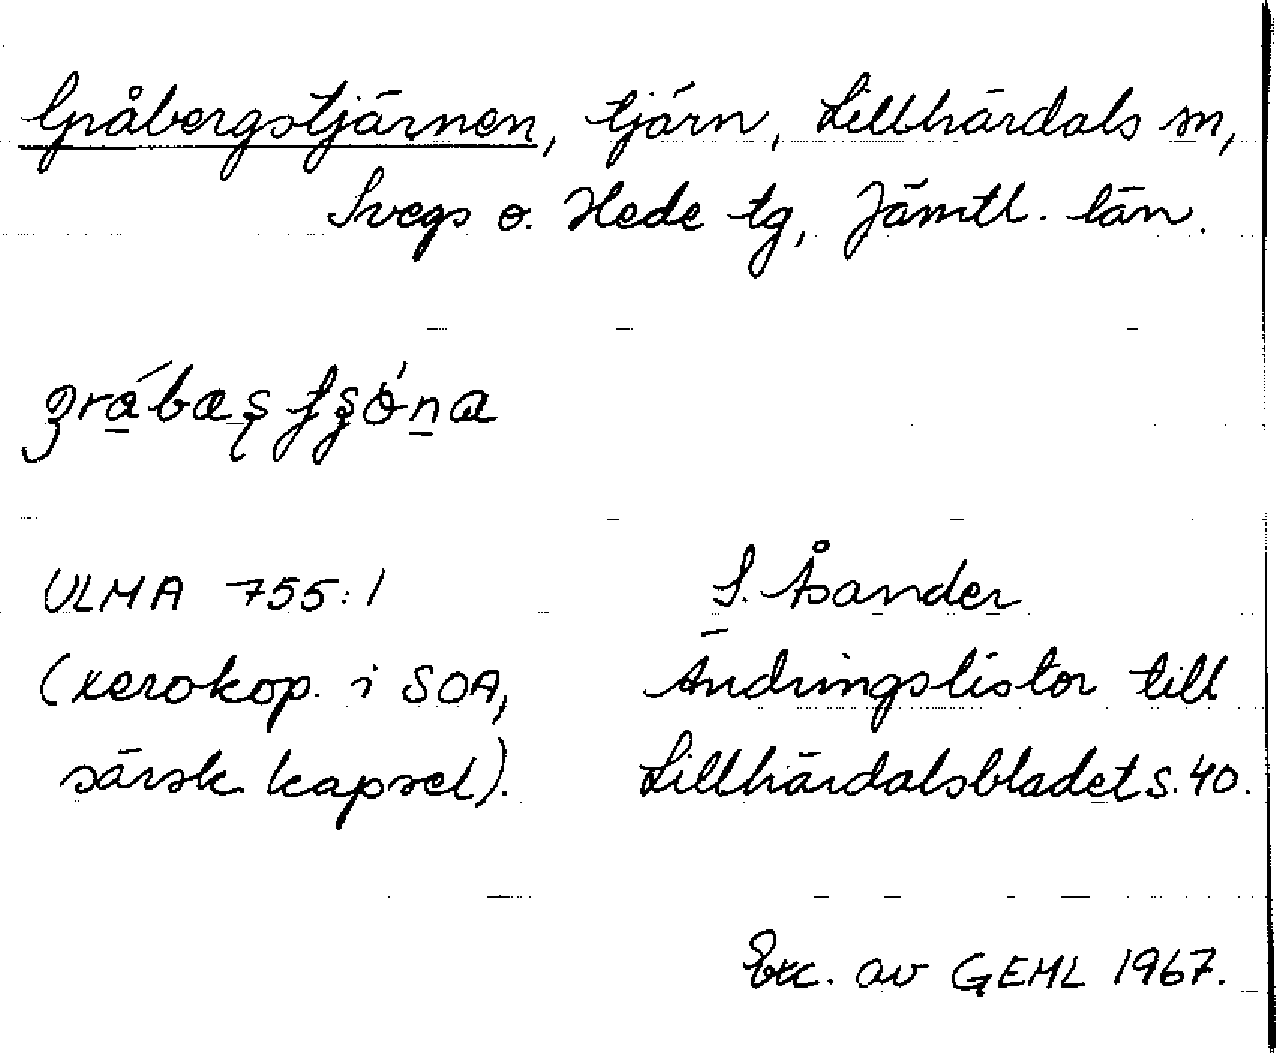 Gråbergstjärnen, tjärn, Lillhärdals sn,
Svegs o. Hede tg, Jämtl. län.
ULMA 755:1
(xerokop. i SOA,
särsk. kapsel).
S. Åsander
Ändringslistor till
Lillhärdalsbladet s. 40.
Exc. av GEHL 1967.